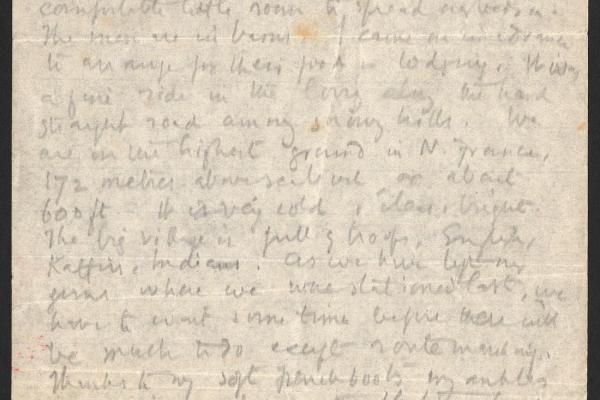 comfortable little room to spread ourselves in.
The men are in barns. I came on in advance
to arrange for their food & lodging. It was
a fine ride in the lorry along the hard
straight road among snowy hills. We
are on the highest ground in N. France,
172 metres above sea level or about
600 ft. It is very cold, clear, bright.
The big village is full of troops, English,
Kaffirs, Indians. As we have left our
guns where we were stationed last, we
have to wait some time before there will
be much to do except route marching.
Thanks to my soft trench boots my ankles